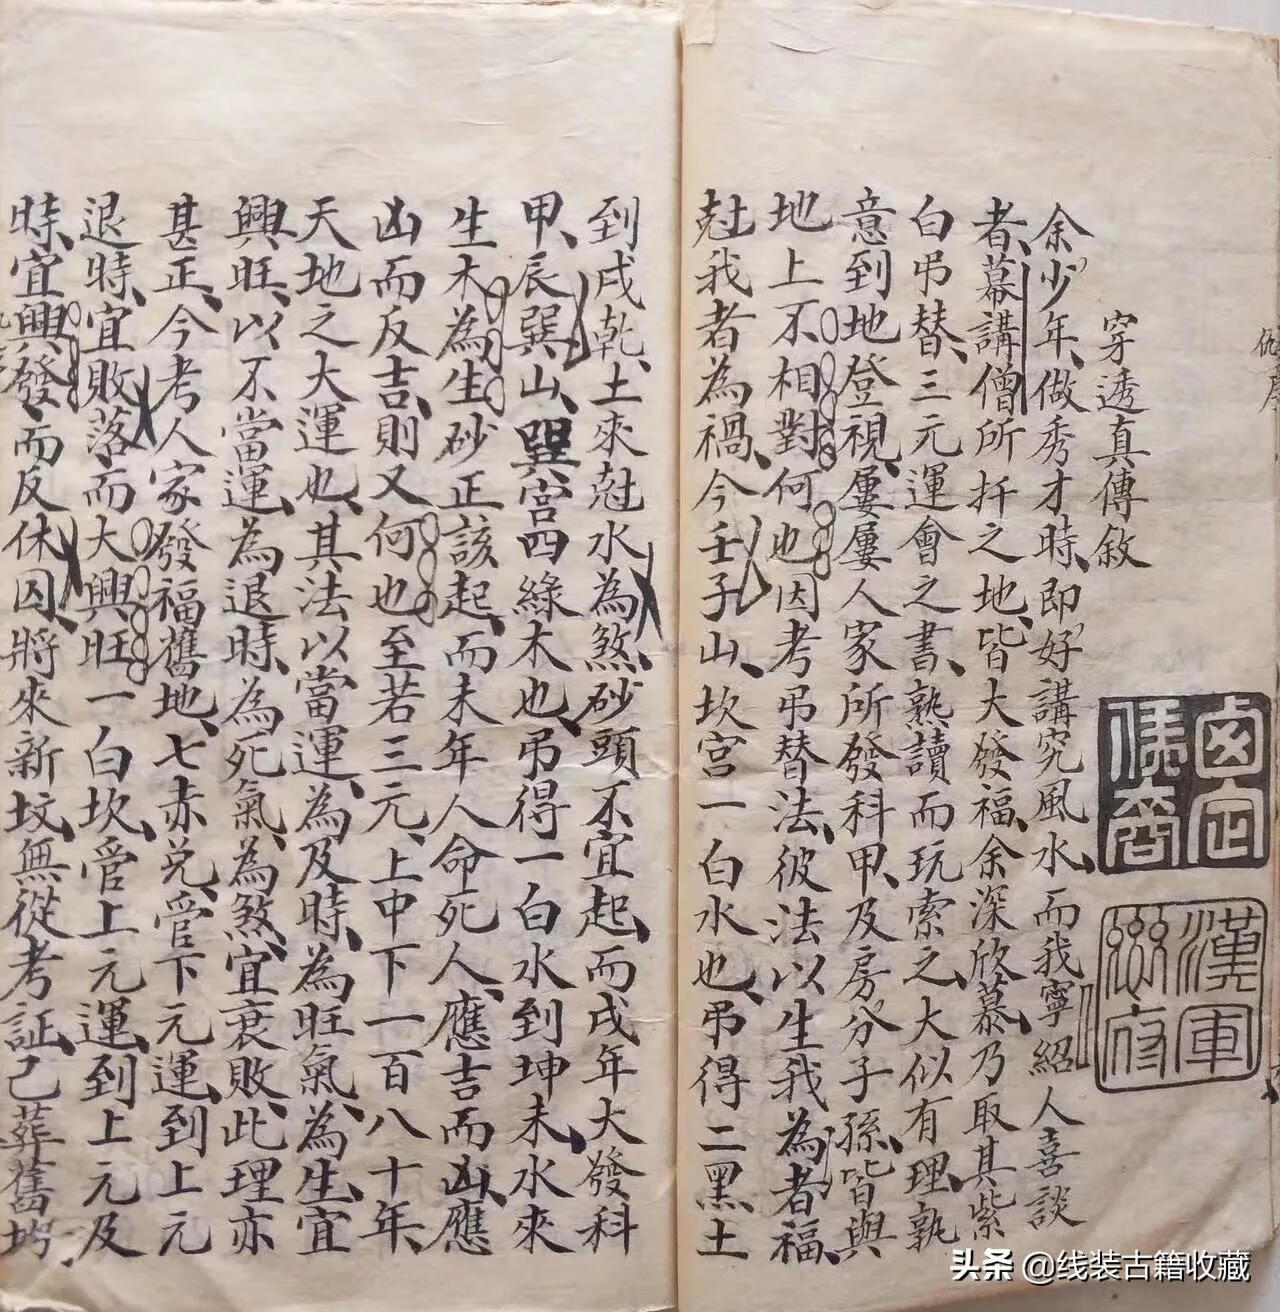 穿透真傳敘
余少年、做秀才時、即好講究風水、而我寧紹人喜談
者、幕講僧所扦之地、皆大發福、余深欣慕、乃取其紫
白弔替、三元運會之書、熟讀而玩索之、大似有理、孰
意到地登視、屢屢人家所發科甲、及房分子孫、皆與
地上不相對、何也、因考弔替法、彼法以生我為者福、
尅我者為禍、今壬子山、坎宮一白水也、弔得二黑土
到戌乾、土來尅水為煞、砂頭不宜起、而戌年大發科
甲、辰巽山、巽宮四綠木也、弔得一白水到坤未、水來
生木為生砂正該起、而未年人命死人、應吉而凶、應
凶而反吉、則又何也、至若三元、上中下一百八十年、
天地之大運也、其法以當運、為及時、為旺氣、為生、宜
興旺、以不當運、為退時、為死氣、為煞、宜衰敗、此理亦
甚正、今考人家發福舊地、七赤兌、管下元運、到上元
退時、宜敗落而大興旺、一白坎、管上元運、到上元及
時、宜興發、而反休囚、將來新坟無從考証、己葬舊坟、
漢軍
头条 @线装古籍收藏